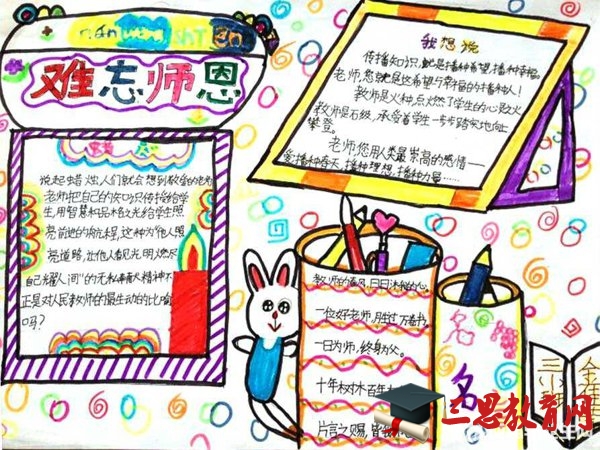 nan wang shī en
难忘师恩
我想说
传播知识,就是播种希望,播种幸福。
老师,您就是这希望与幸福的播种人!
教师是火种,点燃了学生的心灵之火
教师是石级,承受着学生一步步踏实地向
攀登。
老师您用人类最崇高的感情——
爱播种春天,播种理想,播种力量……
说起蜡烛人们就会想到敬爱的老师
老师把自己的知识传授给学
生,用智慧和品格之光给学生照
亮前进的航程,这种为他人照
亮道路,让他人看见光明,燃尽
自己"耀人间"的无私奉献精神不
正是对人民教师的最生动的比喻
吗?
教师的春风,日日沐我心。
一位好老师,胜过万卷书。
一日为师,终身为父。
十年树木百年
片言之赐,皆我师也
名
名
三思教育网